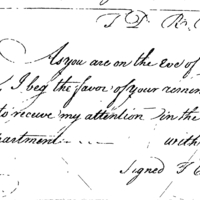 T P R.
As you are on the eve of
I beg the favor of your
to receive my attention in the
artment
with
Signed T